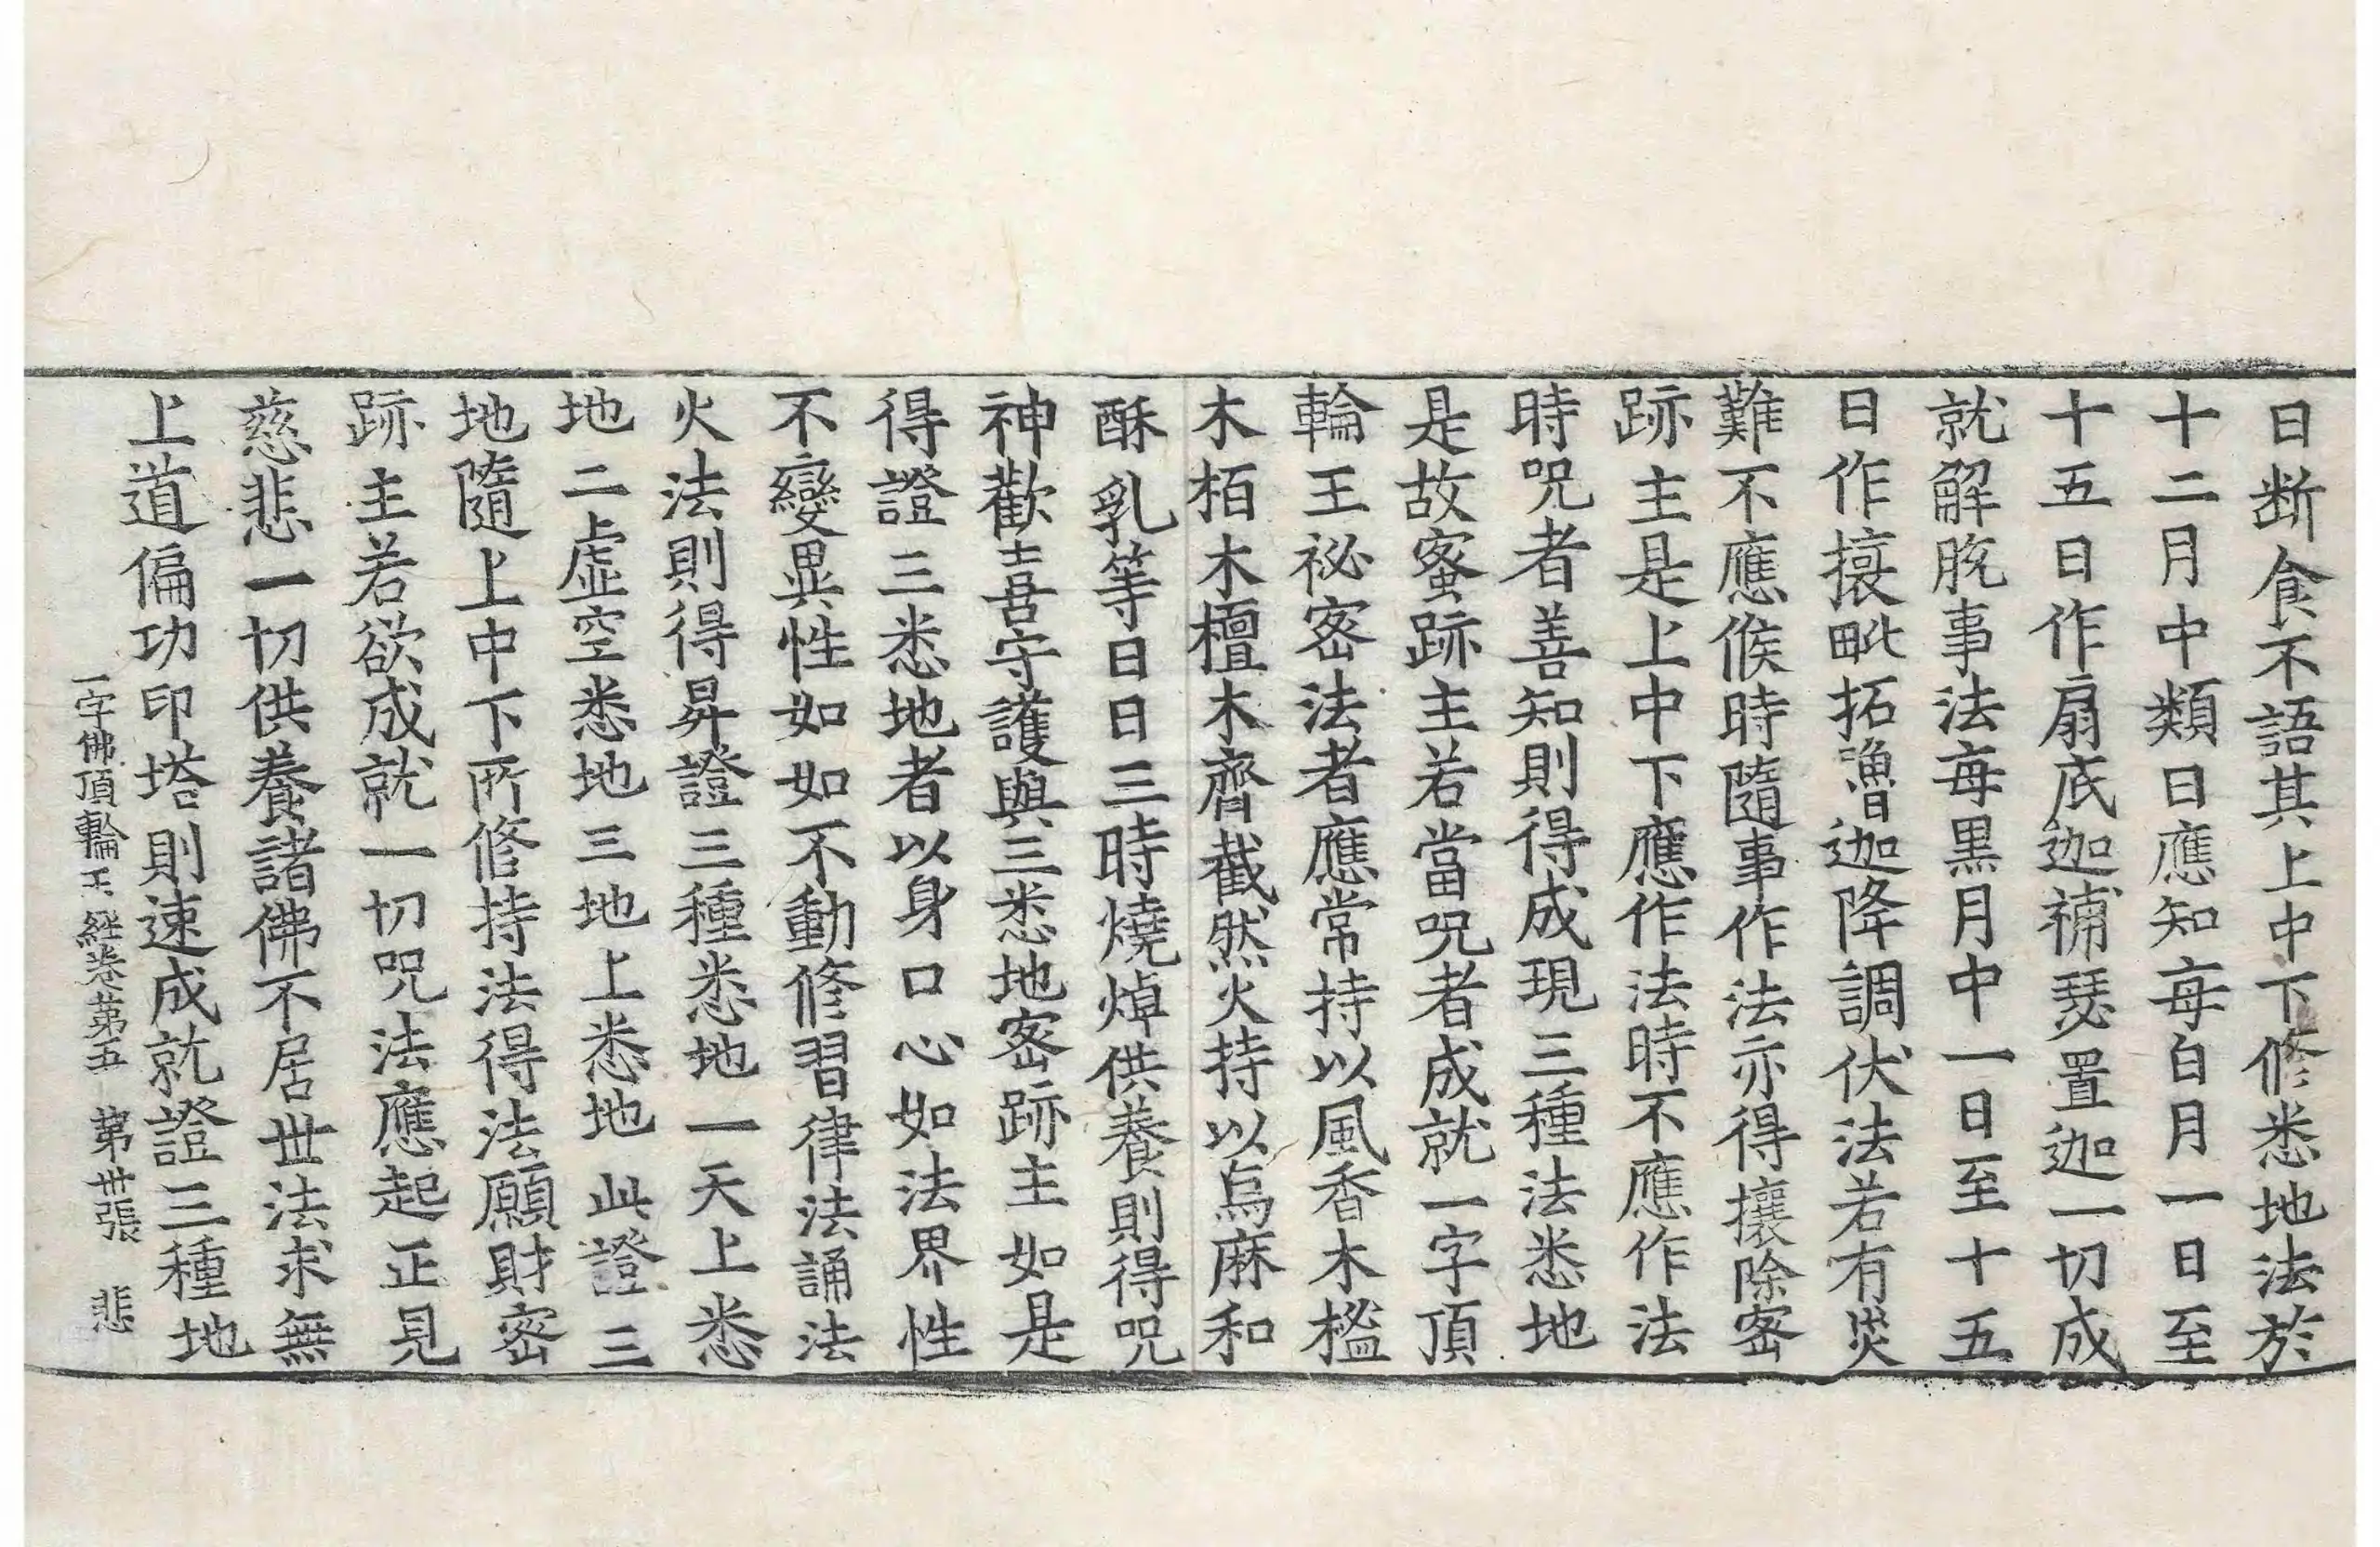 日断食不語其上中下修悉地法於
十二月中類日應知每白月一日至
十五日作扇底迦補瑟置迦一切成
就解脫事法每黑月中一日至十五
日作攘毗柘嚕迦降調伏法若有災
難不應候時隨事作法亦得攘除密
跡主是上中下應作法時不應作法
時呪者善知則得成現三種法悉地
是故蜜跡主若當呪者成就一字頂
輪王祕密法者應常持以風香木檻
木栢木檀木齊截然火持以烏麻和
酥乳等日日三時燒焯供養則得呪
神歡喜守護與三悉地密跡主如是
得證三悉地者以身口心如法界性
不變異性如如不動修習律法誦法
火法則得昇證三種悉地一天上悉
地二虛空悉地三地上悉地此證三
地隨上中下所修持法得法願財密
跡主若欲成就一切呪法應起正見
慈悲一切供養諸佛不居世法求無
上道偏功印塔則速成就證三種地
一字佛頂輪王經卷第五 第卅張 悲